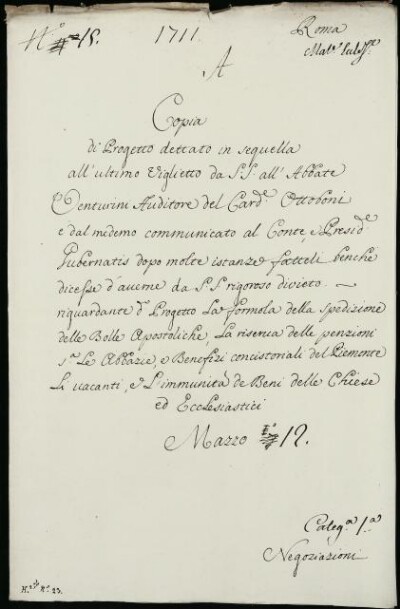 N.° 18. 1711. Roma
Mat.e Eccl.che
A
Copia
di Progetto dettato in sequella
all'ultimo Viglietto da S.S. all'Abbate
Centurini Auditore del Card.e Ottoboni
e dal medemo communicato al Conte, e Presid.e
Gubernatis dopo molte istanze fatteli benche
dicesse d'averne da S.S. rigoroso divieto. —
riguardante d.o Progetto La formola della spedizione
delle Bolle Apostoliche, La riserva delle penzioni
s.a Le Abbazie, e Benefizi concistoriali del Piemonte
li vacanti, e L'immunità de Beni delle Chiese
ed Ecclesiastici
Mazzo 12.
Categ.a 1.a
Negoziazioni